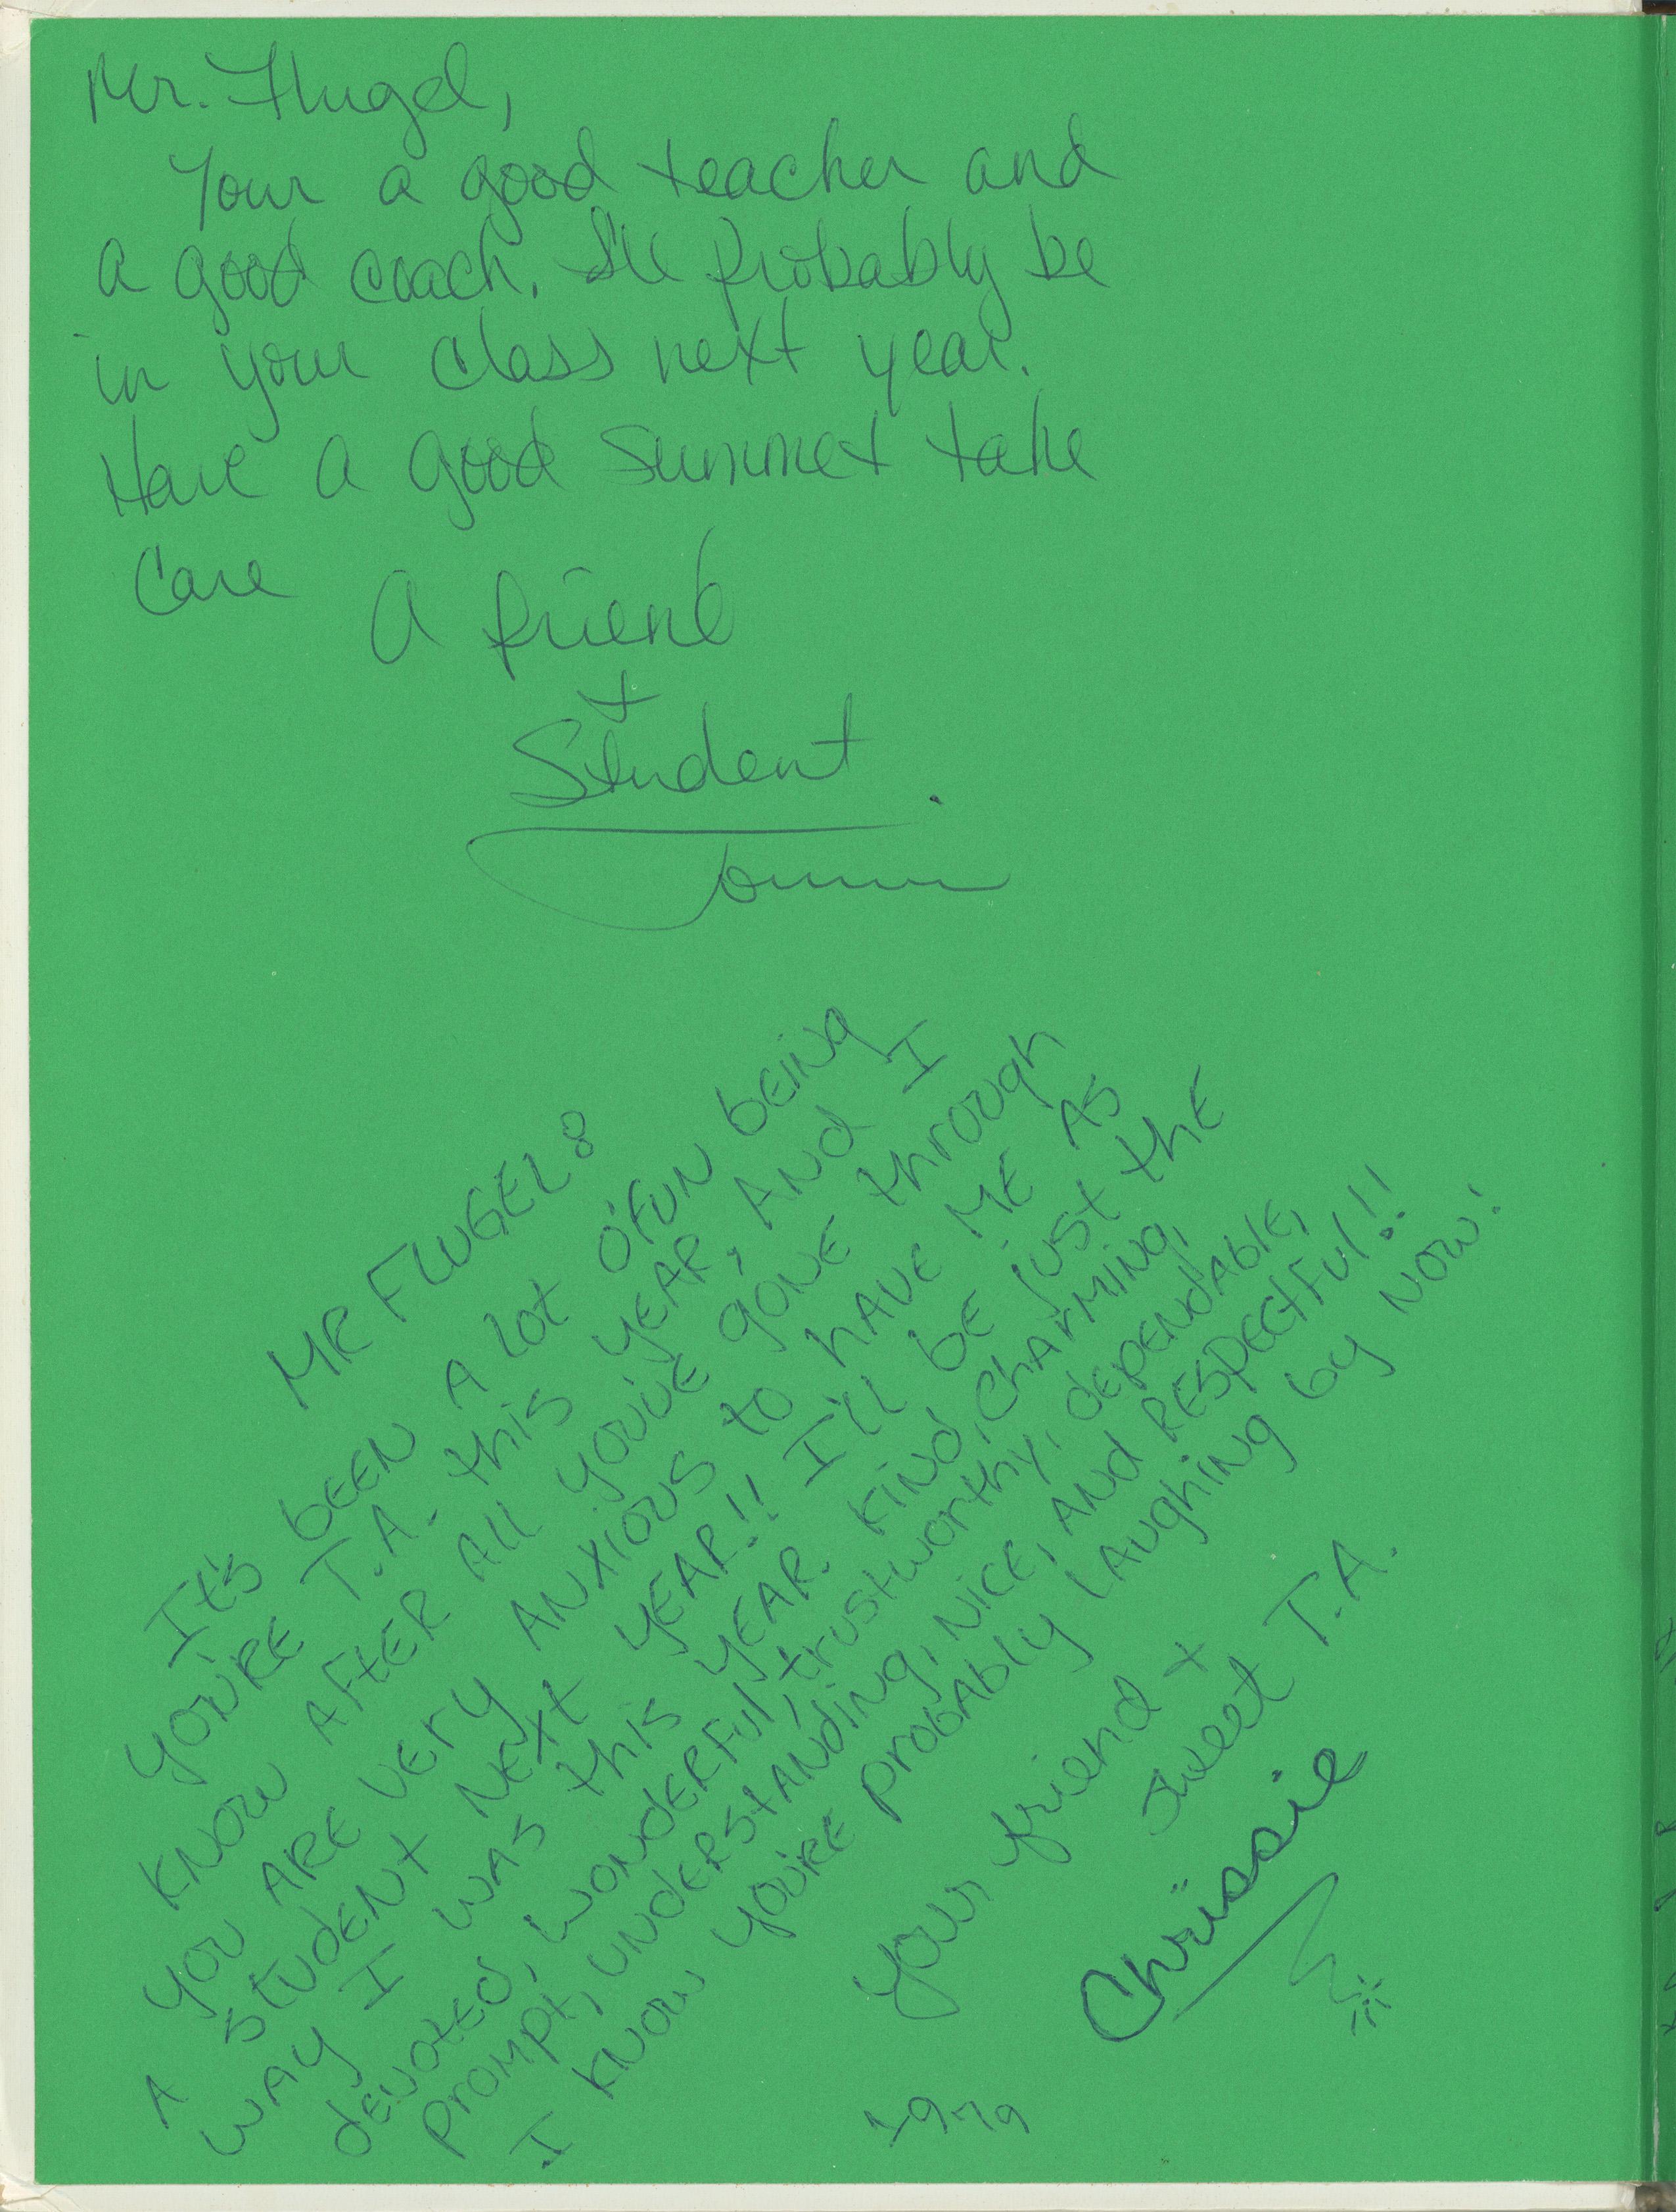 Mr. Flugel,
Your a good teacher and
a good coach. I'll probably be
in your class next year.
Have a good summer take
care
A friend
+
Student
MR FLUGEL:
It's bEEN A lot O'FUN bEiNg
you'RE T.A. this yEAR, ANd I
KNOW AFtER All you'vE gONE through
you ARE VERy ANXiOUS to hAVE ME AS
A StUdENt NEXt yEAR!! I'll bE juSt thE
WAy I WAS this yEAR. KiNd, ChArMiNg,
dEVOtEd, WONdERFul, truStworthy, dEpENdAblE,
prompt, uNdERStANdiNg, NiCE, ANd RESpECtFul!!
I KNOW you'RE probAbly lAughiNg by NOW!
Your friend +
sweet T.A.
Chrissie
1979